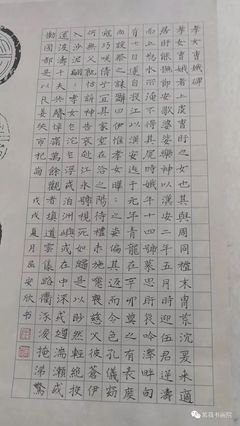 孝女曹娥碑
孝女曹娥者上虞曹盱之女也其與周同祖末胄荒沉爰來適
居盱能撫節安歌婆娑樂神以漢安二年五月時迎伍君逆濤
而上為水所淹不得其屍時娥年十四號慕思盱哀吟澤畔旬
有七日遂自投江以漢安迄于元年青龍在辛卯莫之有表度
尚設祭之誄辭曰伊惟孝女曄曄之姿偏其返而令色孔儀窈
窕巧笑倩兮宜其家室在洽之陽待禮未施嗟喪慈父彼蒼伊
何無父孰怙訴神告哀赴江永號視死如歸是以眇然輕絕投
入沙泥翩翩孝女乍沉乍浮或泊洲嶼或在中流或趨湍瀨或
逭波濤千夫失聲悼痛萬餘觀者填道雲集路衢流淚掩涕驚
慟國都是以哀姜哭市杞崩
戊戌夏月 安欣书